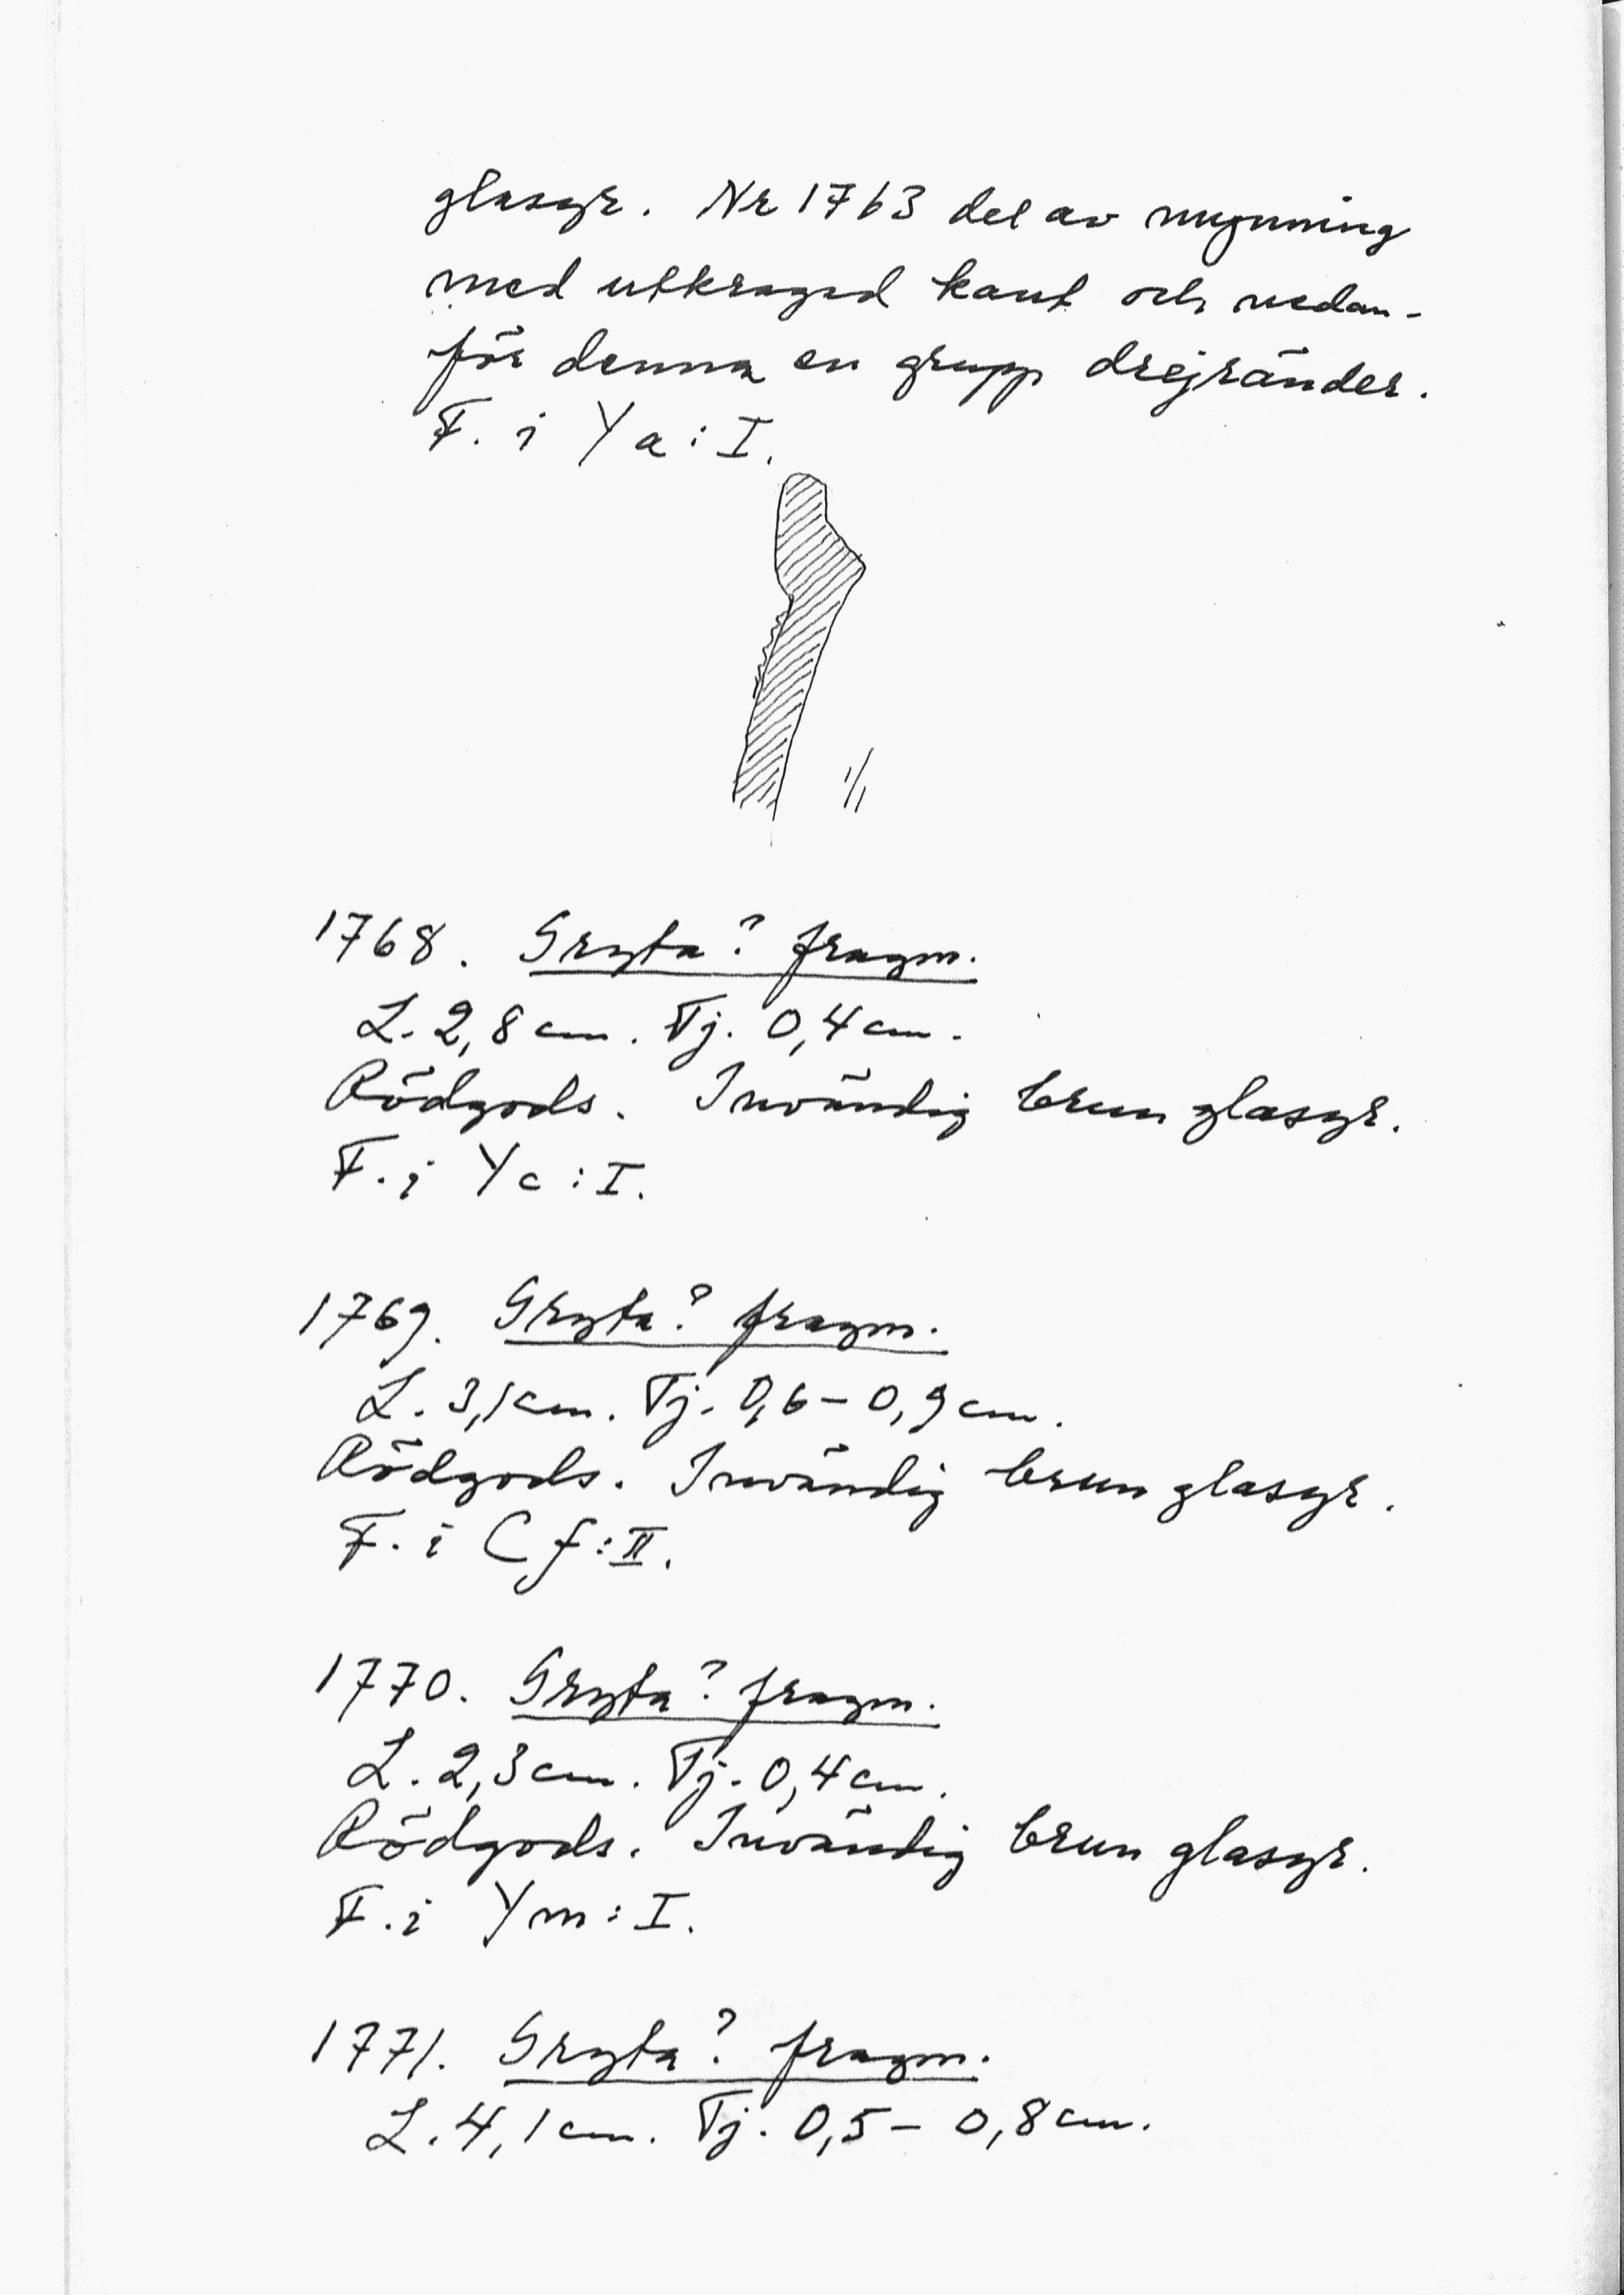 glasyr. Nr 1763 del av mynning
med utkragad kant och nedan-
för denna en grupp drejränder.
F. i Ya: I.
1/1
1768. Gryta? fragm.
L. 2,8 cm. Tj. 0,4 cm.
Rödgods. Invändig brun glasyr.
F. i Yc: I.
1769. Gryta? fragm.
L. 3,1 cm. Tj. 0,6 - 0,9 cm.
Rödgods. Invändig brun glasyr.
F. i Cf: II.
1770. Gryta? fragm.
L. 2,3 cm. Tj. 0,4 cm.
Rödgods. Invändig brun glasyr.
F. i Ym: I.
1771. Gryta? fragm.
L. 4,1 cm. Tj. 0,5 - 0,8 cm.